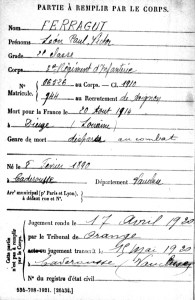 PARTIE À REMPLIR PAR LE CORPS.
Nom FERRAGUT
Prénoms Léon Paul Victor
Grade 2e classe
Corps Régiment d'Infanterie
N° Matricule. au Corps. — Cl. 1910
944 au Recrutement de Avignon
Mort pour la France le 20 août 1914
à Dieuze (Lorraine)
Genre de mort disparu au combat
Né le 5 février 1890
à Caderousse Département Vaucluse
Arr' municipal (p' Paris et Lyon), à défaut rue et N°.
Cette partie n'est pas à remplir par le Corps.
Jugement rendu le 17 Avril 1920
par le Tribunal de Orange
jugement transcrit le 15 Mai 1920
à Caderousse Vaucluse
N° du registre d'état civil
534-708-1921. [26434.]